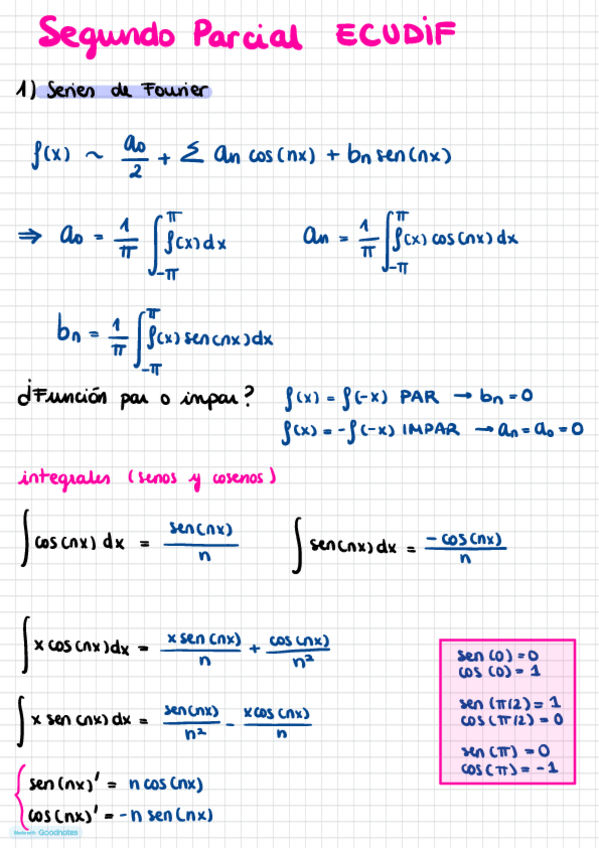 Segundo Parcial ECUDIF
1) Series de Fourier
f(x) ~ a₀/2 + Σ an cos(nx) + bn sen(nx)
⇒ a₀ = 1/π ∫_{-π}^{π} f(x) dx    an = 1/π ∫_{-π}^{π} f(x) cos(nx) dx
bn = 1/π ∫_{-π}^{π} f(x) sen(nx) dx
¿Función par o impar? f(x) = f(-x) PAR → bn = 0
f(x) = -f(-x) IMPAR → an = a₀ = 0
integrales (senos y cosenos)
∫ cos(nx) dx = sen(nx)/n    ∫ sen(nx) dx = -cos(nx)/n
∫ x cos(nx) dx = x sen(nx)/n + cos(nx)/n²
∫ x sen(nx) dx = sen(nx)/n² - x cos(nx)/n
sen(0) = 0
cos(0) = 1
sen(π/2) = 1
cos(π/2) = 0
sen(π) = 0
cos(π) = -1
sen(nx)' = n cos(nx)
cos(nx)' = -n sen(nx)
Made with Goodnotes